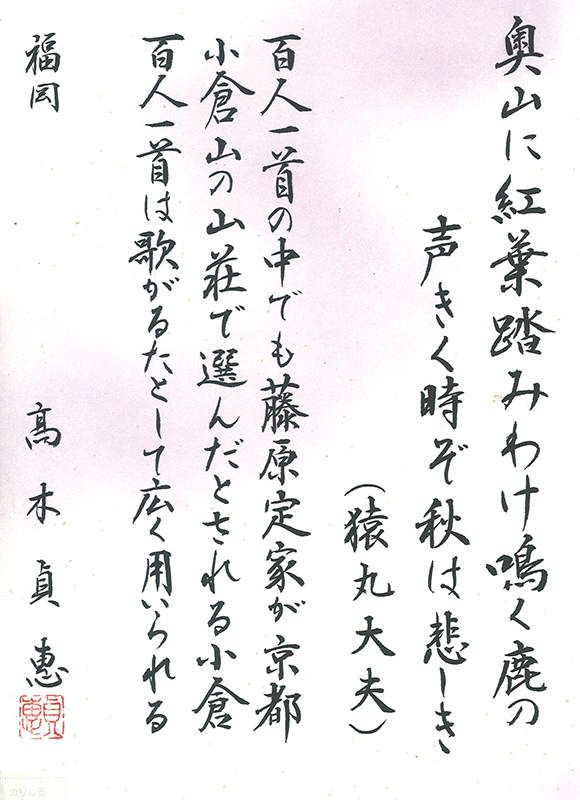 奥山に紅葉踏みわけ鳴く鹿の
声きく時ぞ秋は悲しき
(猿丸大夫)
百人一首の中でも藤原定家が京都
小倉山の山荘で選んだとされる小倉
百人一首は歌がるたとして広く用いられる
福岡 髙木貞惠
貞惠
のりしろ